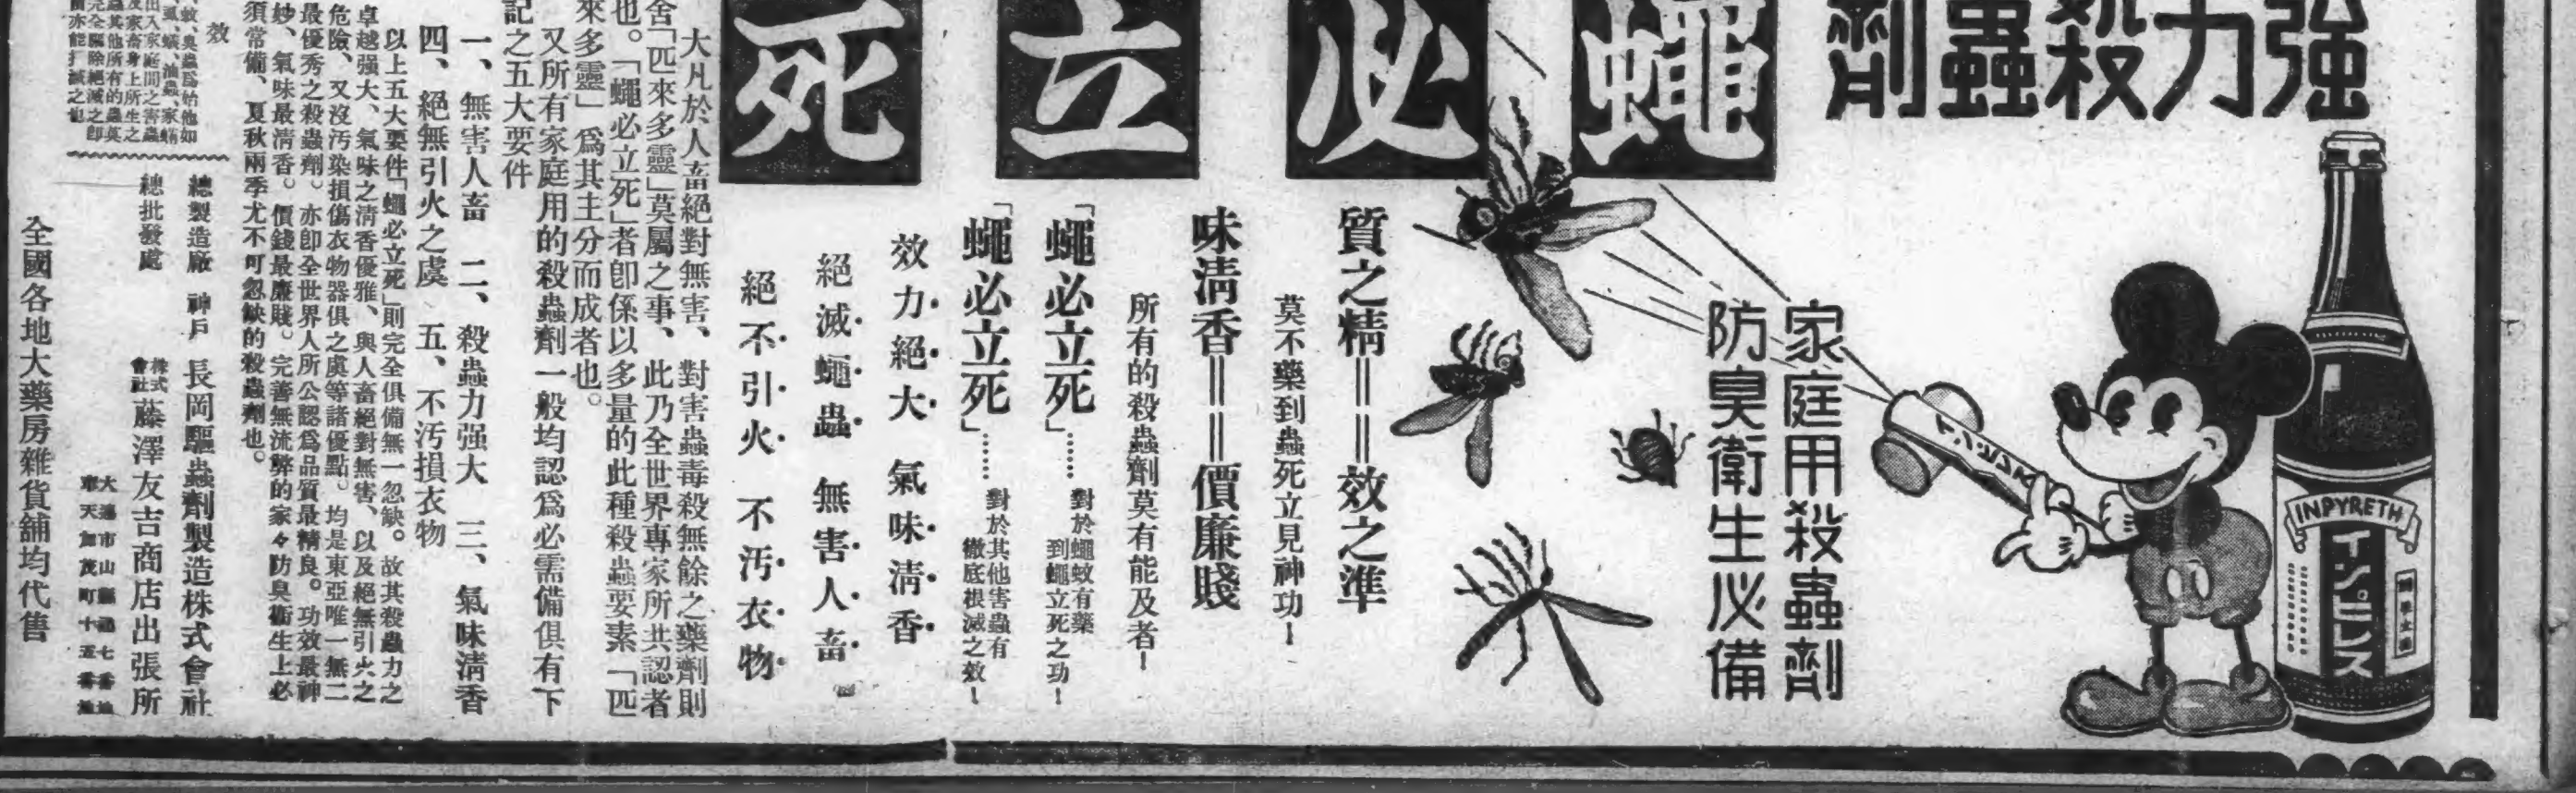 強力殺蟲劑
蠅必立死
INPYRETH
インピレス
家庭用殺蟲劑
防臭衛生必備
質之精＝＝效之準
莫不藥到蟲死立見神功！
味清香＝＝價廉賤
所有的殺蟲劑莫有能及者！
「蠅必立死」……對於蠅蚊有藥
到蠅立死之功！
「蠅必立死」……對於其他害蟲有
徹底根滅之效！
效力絕大　氣味清香
絕滅蠅蟲　無害人畜
絕不引火　不汚衣物
大凡於人畜絕對無害、對害蟲毒殺無餘之藥劑則
舍「匹來多靈」莫屬之事、此乃全世界專家所共認者
也。「蠅必立死」者卽係以多量的此種殺蟲要素「匹
來多靈」爲其主分而成者也。
又所有家庭用的殺蟲劑一般均認爲必需備俱有下
記之五大要件
一、無害人畜　二、殺蟲力强大　三、氣味清香
四、絕無引火之虞　五、不汚損衣物
以上五大要件「蠅必立死」則完全俱備無一忽缺。故其殺蟲力之
卓越强大、氣味之清香優雅、與人畜絕對無害、以及絕無引火之
危險、又沒汚染損傷衣物器俱之虞等諸優點。均是東亞唯一無二
最優秀之殺蟲劑。亦卽全世界人所公認爲品質最精良。功效最神
妙、氣味最清香。價錢最廉賤。完善無流弊的家々防臭衛生上必
須常備、夏秋兩季尤不可忽缺的殺蟲劑也。
效
蚊、臭蟲爲始他如
蝨、蟻、油蟲、家蝻
出入家庭間之害蟲
及家畜身上所生之
蟲其他所有的蟲莫
完全驅除絕滅之卽
亦能打滅之也
總製造廠　神戶　長岡驅蟲劑製造株式會社
總批發處　株式會社藤澤友吉商店出張所
大連市山縣通七番地
奉天加茂町十五番地
全國各地大藥房雜貨舖均代售